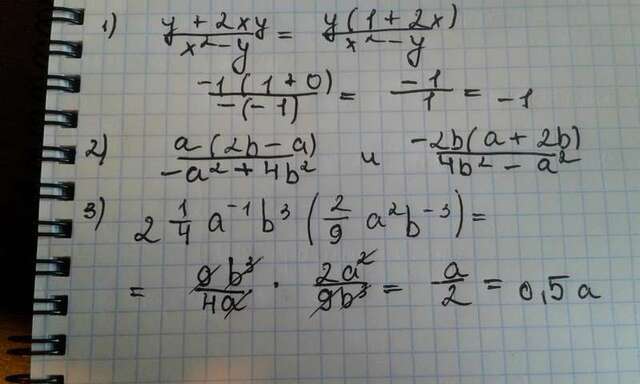 1) (y + 2xy)/(x² - y) = y(1 + 2x)/(x² - y)
-1(1 + 0)/-(-1) = -1/1 = -1
2) a(2b - a)/(-a² + 4b²) и -2b(a + 2b)/(4b² - a²)
3) 2 1/4 a⁻¹ b³ (2/9 a² b⁻³) =
= 9b³/4a · 2a²/9b³ = a/2 = 0,5a